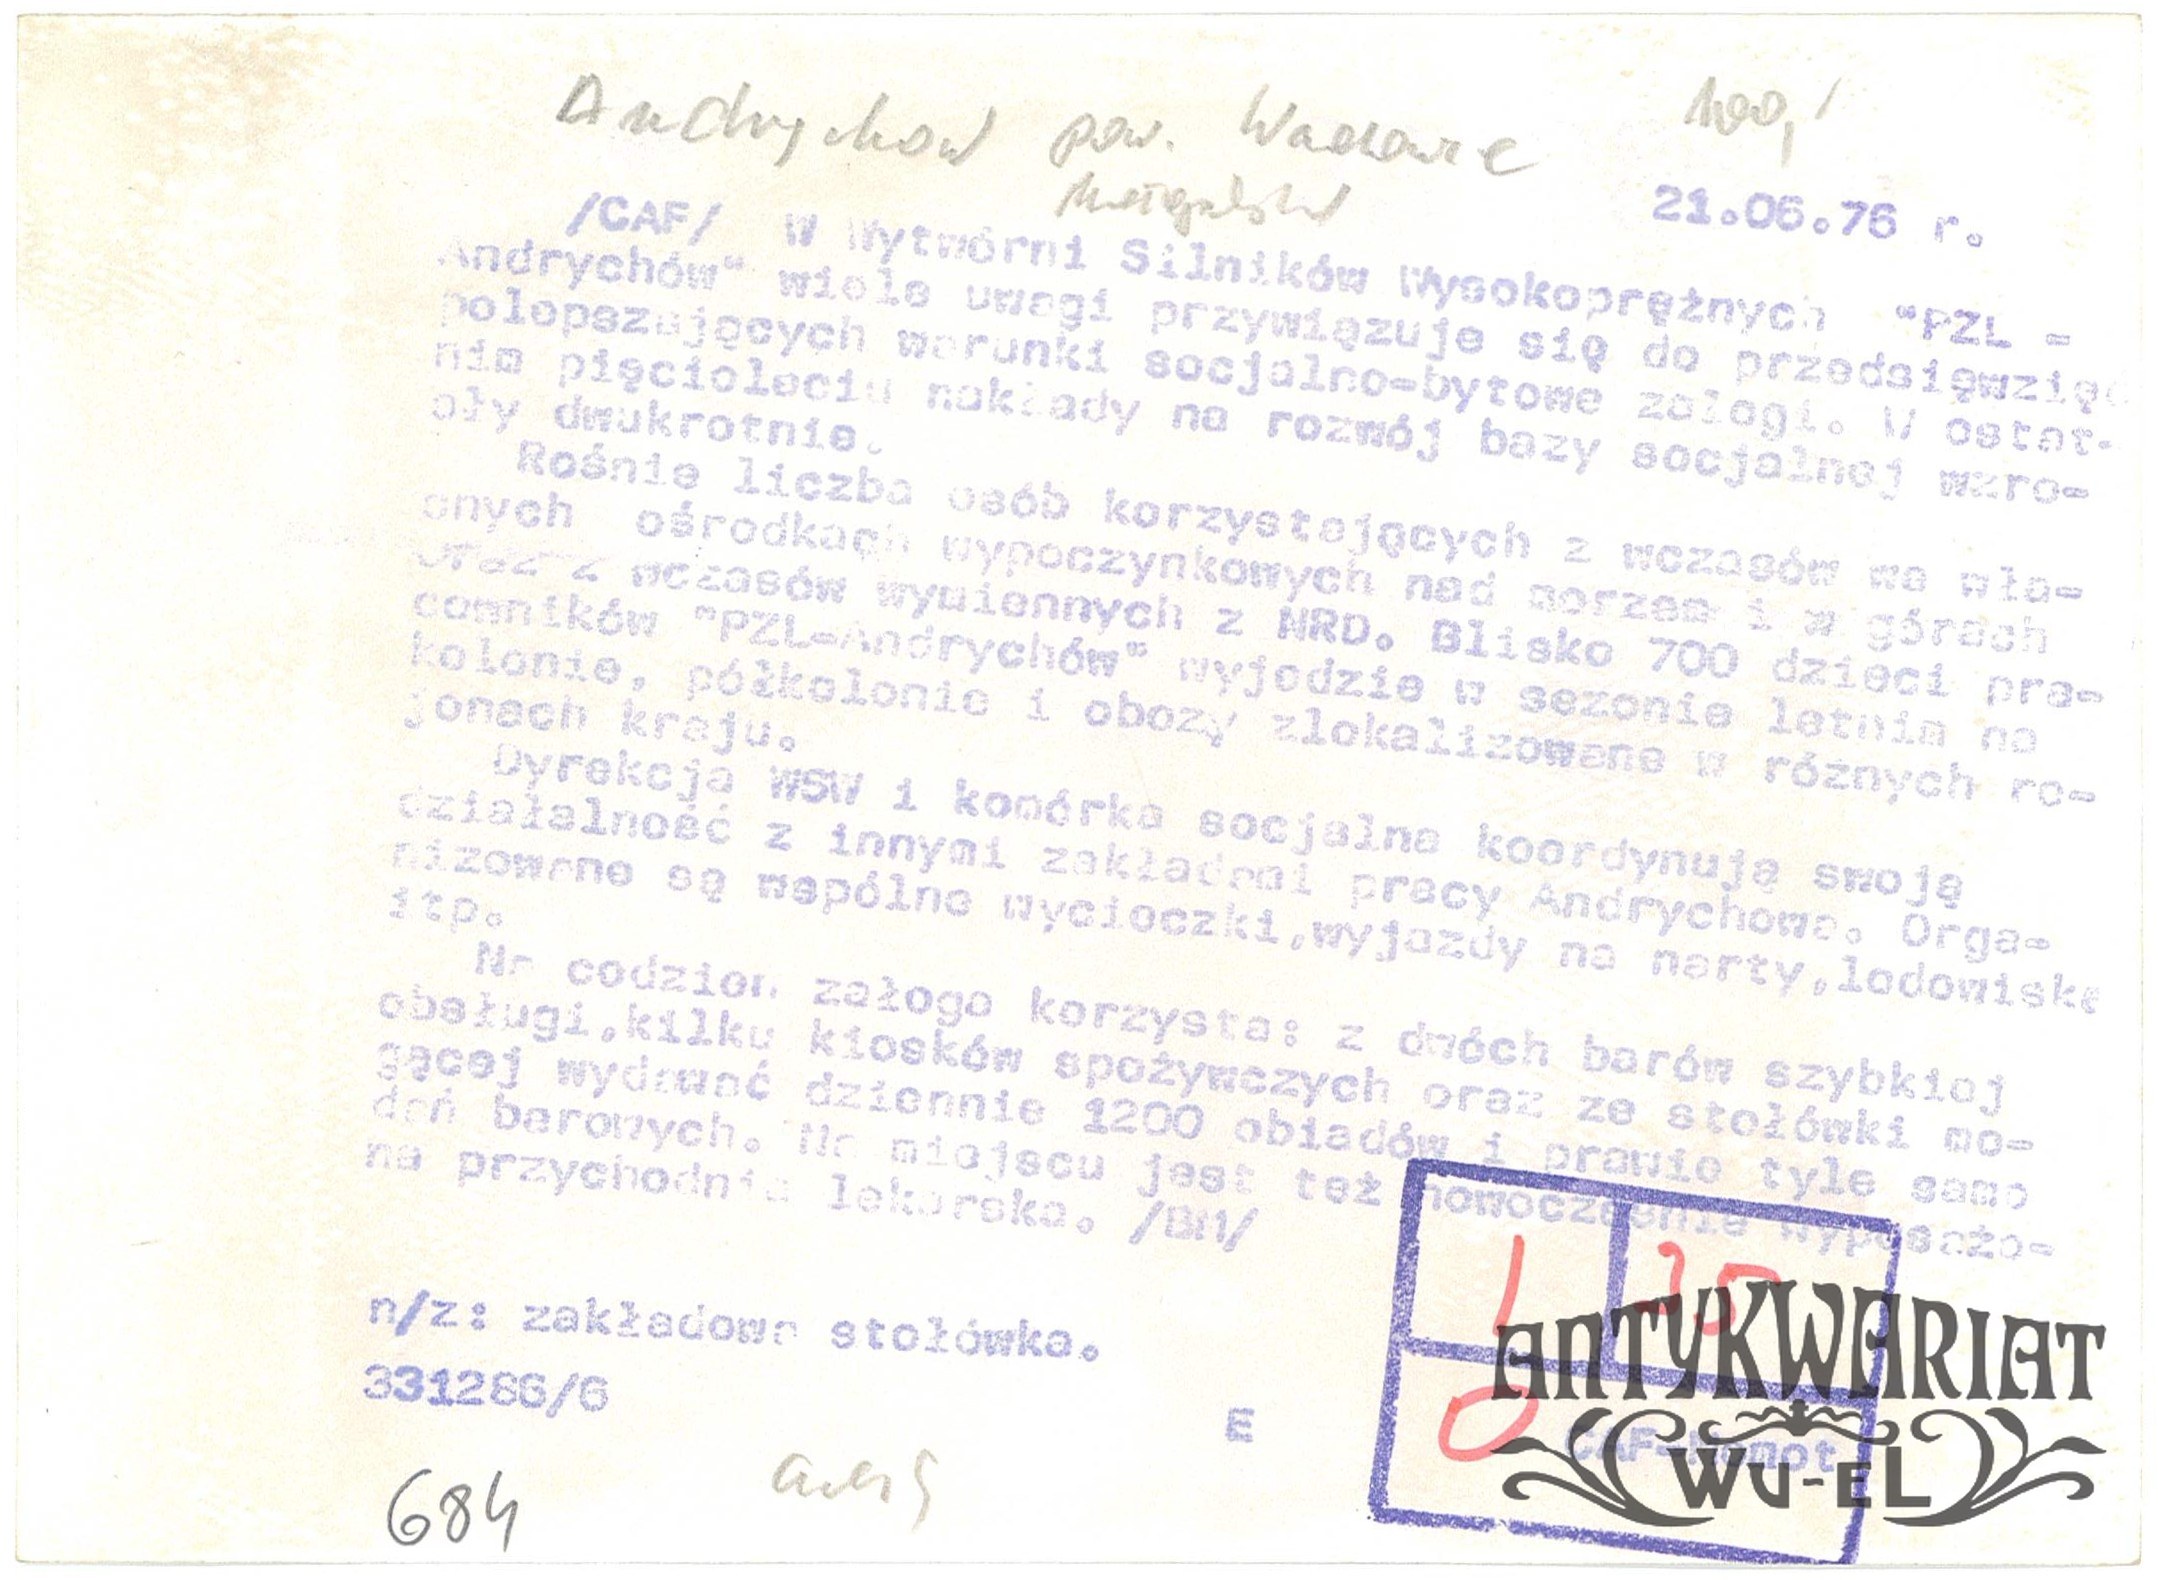 Andrychów pow. Wadowice
100,
21.06.76 r.
/CAF/ W Wytwórni Silników Wysokoprężnych "PZL -
Andrychów" wiele uwagi przywiązuje się do przedsięwzięć
polepszających warunki socjalno-bytowe załogi. W ostat-
nim pięcioleciu nakłady na rozwój bazy socjalnej wzro-
sły dwukrotnie.
Rośnie liczba osób korzystających z wczasów we wła-
snych ośrodkach wypoczynkowych nad morzem i w górach
oraz z wczasów wymiennych z NRD. Blisko 700 dzieci pra-
cowników "PZL-Andrychów" wyjedzie w sezonie letnim na
kolonie, półkolonie i obozy zlokalizowane w różnych re-
jonach kraju.
Dyrekcja WSW i komórka socjalna koordynują swoją
działalność z innymi zakładami pracy Andrychowa. Orga-
nizowane są wspólne wycieczki,wyjazdy na narty,lodowiska
itp.
Na codzień załoga korzysta: z dwóch barów szybkiej
obsługi,kilku kiosków spożywczych oraz ze stołówki mo-
gącej wydawać dziennie 1200 obiadów i prawie tyle samo
dań barowych. Na miejscu jest też nowocześnie wyposażo-
na przychodnia lekarska. /BM/
n/z: zakładowa stołówka.
331286/6
E
1 25
0
CAF-Momot
ANTYKWARIAT
WU-EL
684